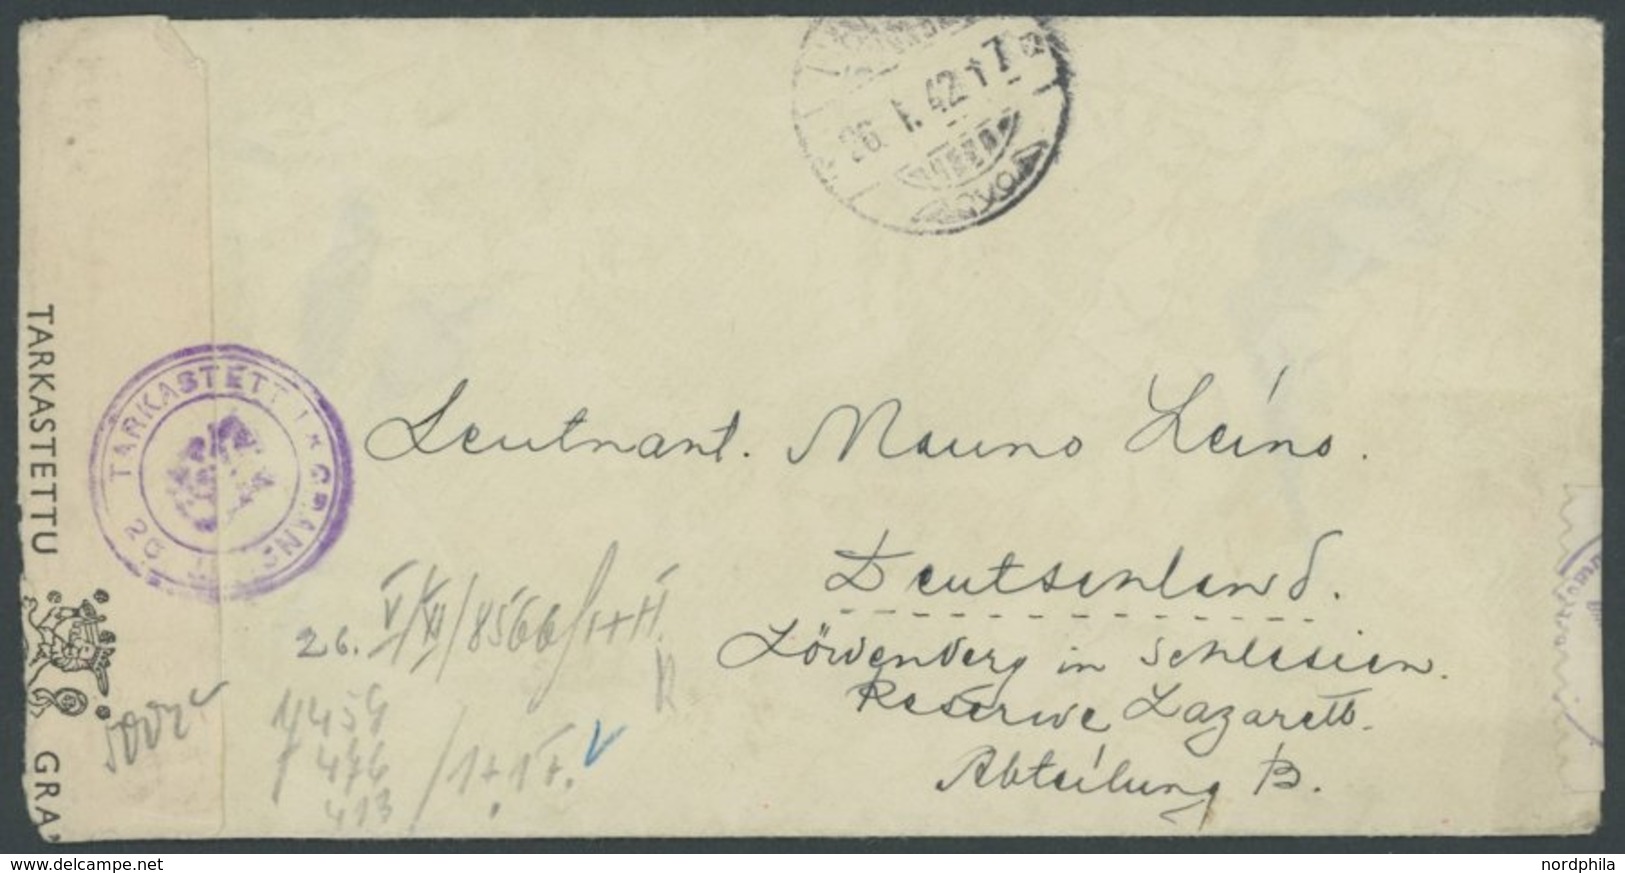 26. I. 42 17
TARKASTETTU
GRA
TARKASTETTU * GRANSK
20
Leutnant. Mauno Leino.
Deutschland.
Löwenberg in Schlesien.
Reserwe Lazarett.
Abteilung B.
26. V/XII/8566/I+II
459
476
413
www.delcampe.net
nordphila